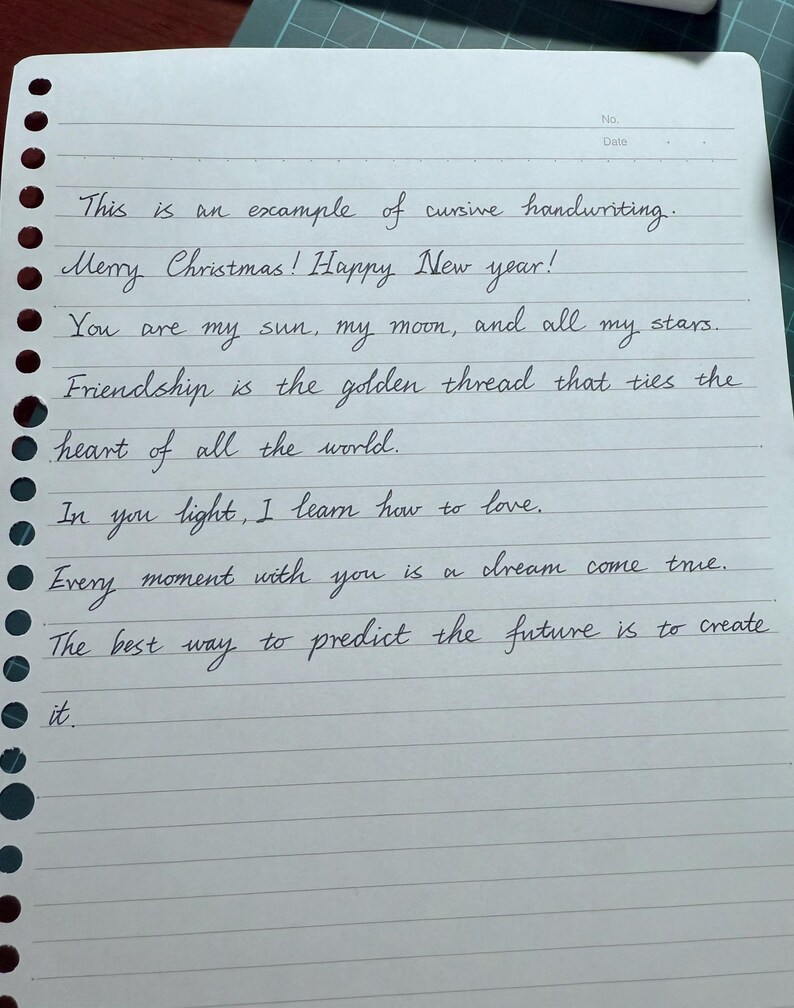 No.
Date
This is an example of cursive handwriting.
Merry Christmas! Happy New year!
You are my sun, my moon, and all my stars.
Friendship is the golden thread that ties the
heart of all the world.
In you light, I learn how to love.
Every moment with you is a dream come true.
The best way to predict the future is to create
it.